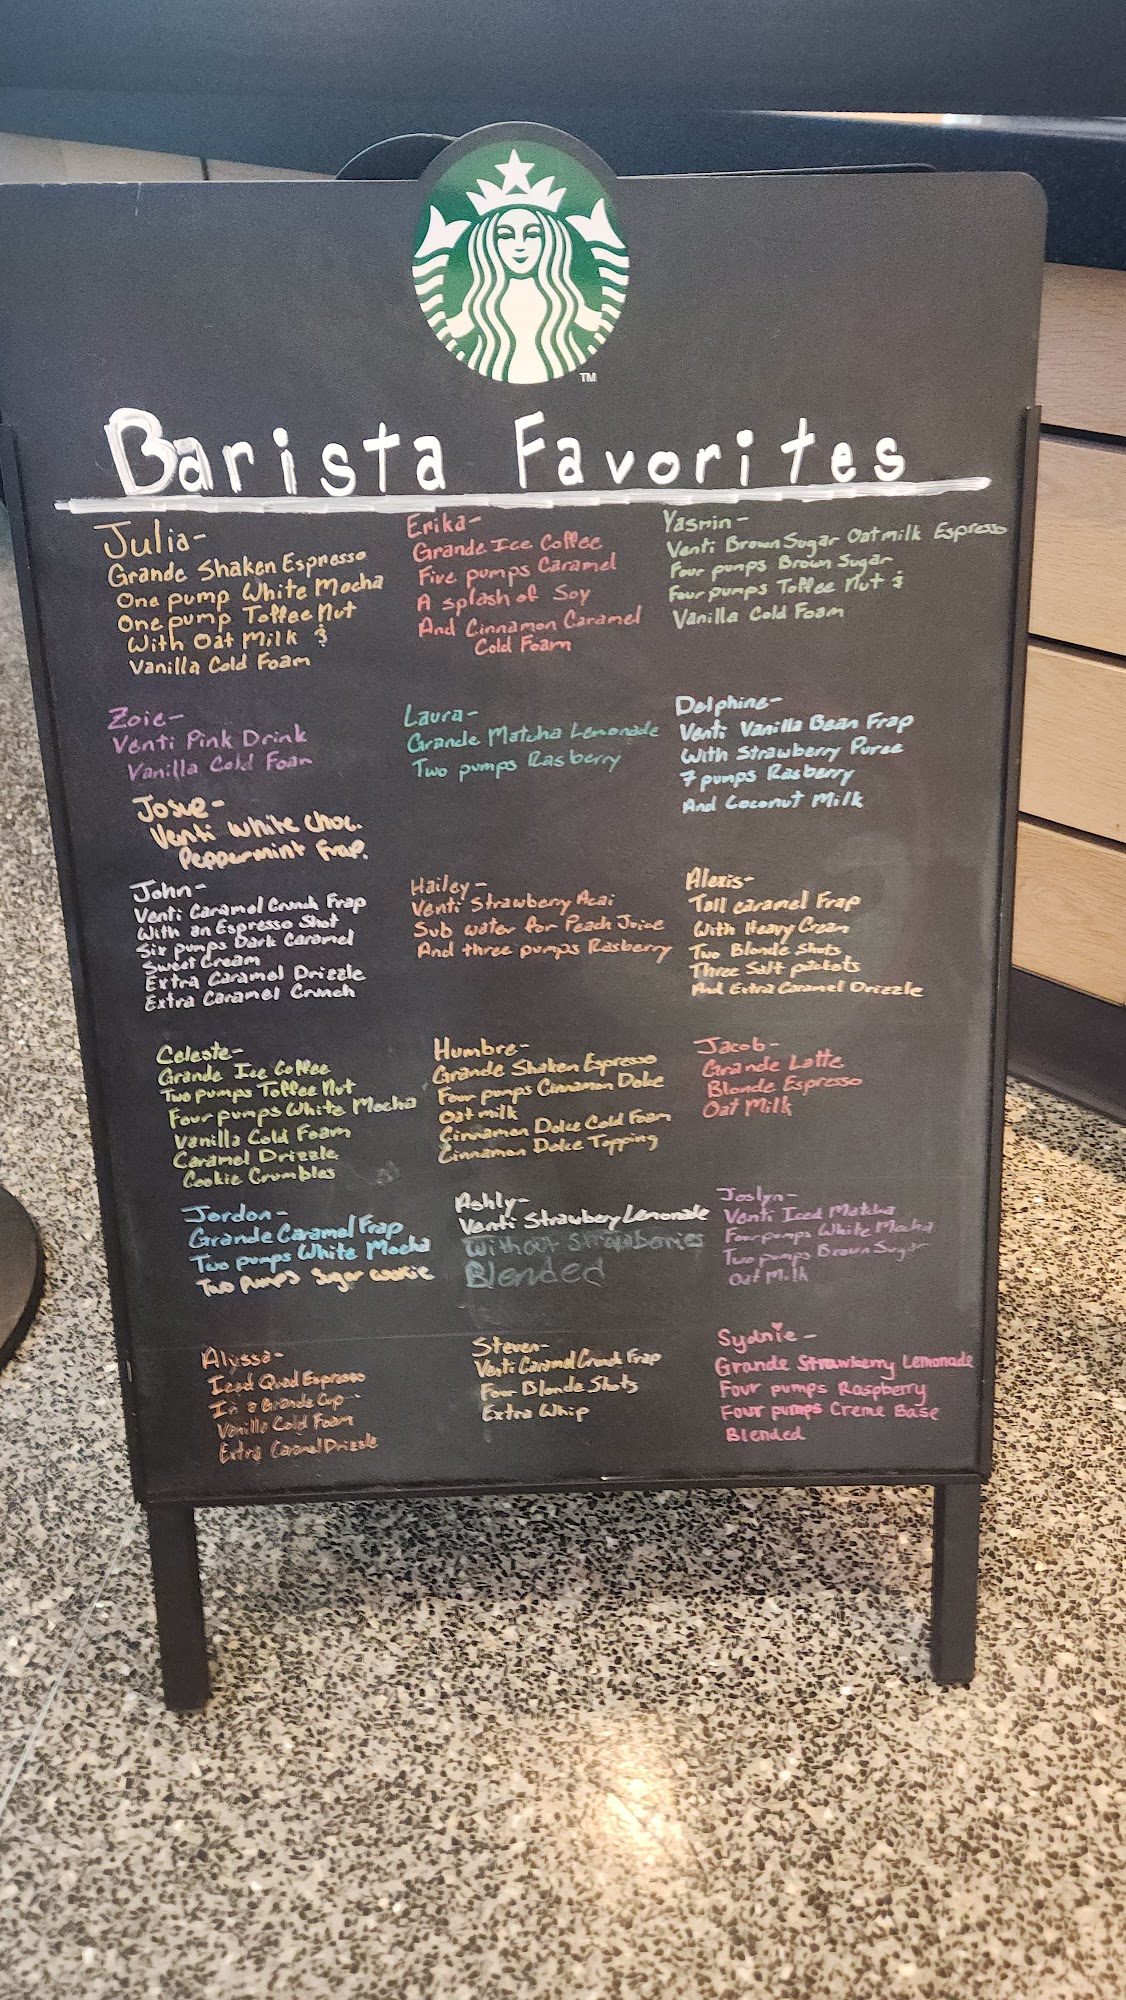 TM
Barista Favorites
Julia-
Grande Shaken Espresso
One pump White Mocha
One pump Toffee Nut
With Oat Milk &
Vanilla Cold Foam
Erika-
Grande Ice Coffee
Five pumps Caramel
A splash of Soy
And Cinnamon Caramel
Cold Foam
Yasmin-
Venti Brown Sugar Oatmilk Espresso
Four pumps Brown Sugar
Four pumps Toffee Nut &
Vanilla Cold Foam
Zoie-
Venti Pink Drink
Vanilla Cold Foam
Laura-
Grande Matcha Lemonade
Two pumps Rasberry
Delphine-
Venti Vanilla Bean Frap
With Strawberry Puree
7 pumps Rasberry
And Coconut Milk
Josue-
Venti White Choc.
Peppermint Frap.
John-
Venti Caramel Crunch Frap
With an Espresso Shot
Six pumps Dark Caramel
Sweet Cream
Extra Caramel Drizzle
Extra Caramel Crunch
Hailey-
Venti Strawberry Acai
Sub water for Peach Juice
And three pumps Rasberry
Alexis-
Tall caramel Frap
With Heavy Cream
Two Blonde Shots
Three Salt packets
And Extra Caramel Drizzle
Celeste-
Grande Ice Coffee
Two pumps Toffee Nut
Four pumps White Mocha
Vanilla Cold Foam
Caramel Drizzle
Cookie Crumbles
Humbre-
Grande Shaken Espresso
Four pumps Cinnamon Dolce
Oat milk
Cinnamon Dolce Cold Foam
Cinnamon Dolce Topping
Jacob-
Grande Latte
Blonde Espresso
Oat Milk
Jordon-
Grande Caramel Frap
Two pumps White Mocha
Two pumps Sugar cookie
Ashly-
Venti Strawbery Lemonade
Without Strawberries
Blended
Joslyn-
Venti Iced Matcha
Four pumps White Mocha
Two pumps Brown Sugar
Oat Milk
Alyssa-
Iced Quad Espresso
In a Grande Cup
Vanilla Cold Foam
Extra Caramel Drizzle
Steven-
Venti Caramel Crunch Frap
Four Blonde Shots
Extra Whip
Sydnie-
Grande Strawberry Lemonade
Four pumps Raspberry
Four pumps Creme Base
Blended